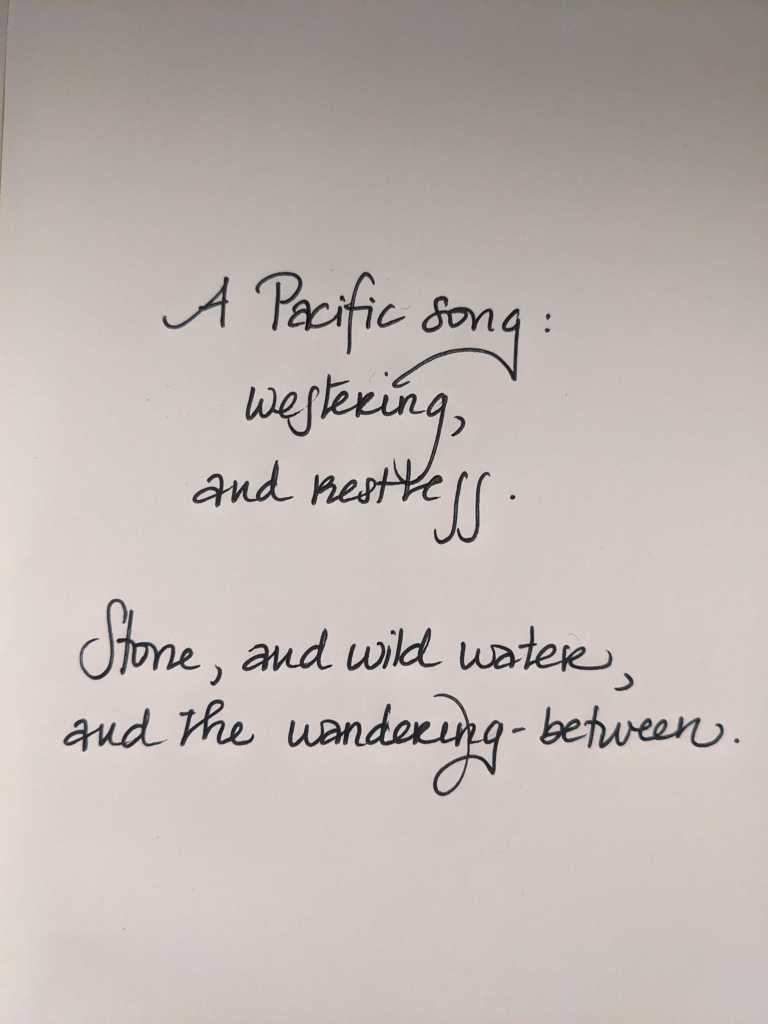 A Pacific song:
westering,
and restless.
Stone, and wild water,
and the wandering-between.